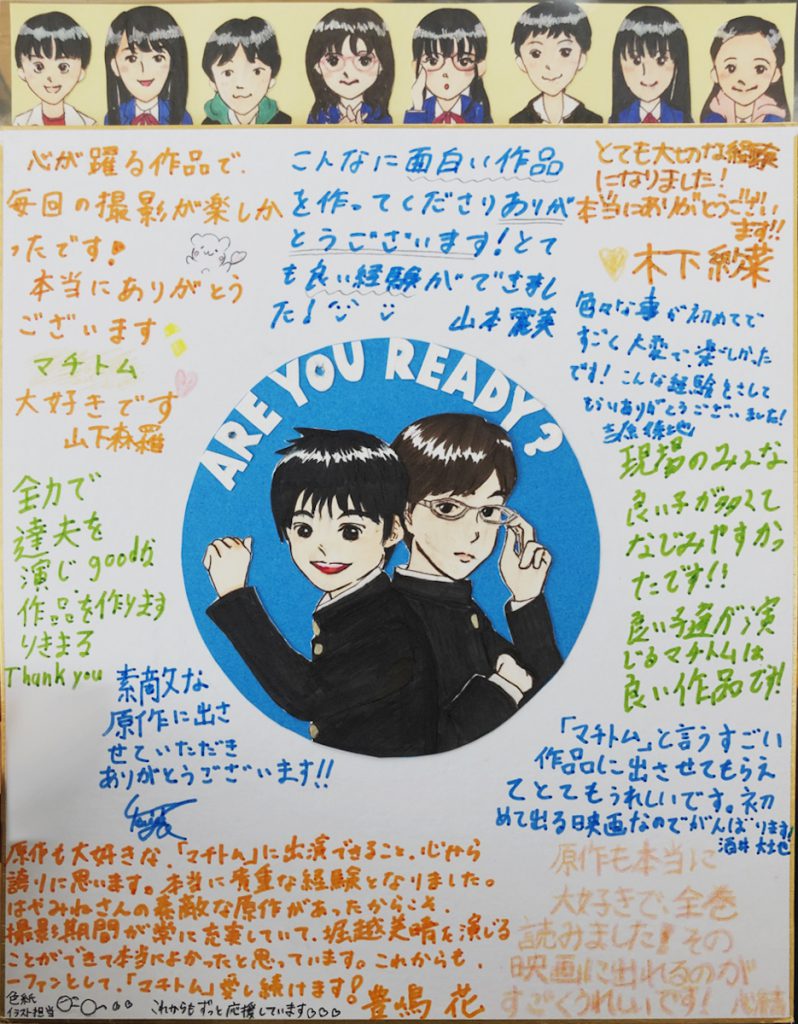 心が躍る作品で、
毎回の撮影が楽しか
ったです!
本当にありがとう
ございます
マチトム
大好きです
山下森羅
こんなに面白い作品
を作ってくださりありが
とうございます!とて
も良い経験ができまし
た!
山本麗美
とても大切な経験
になりました!
本当にありがとうござい
ます!!
木下紗菜
色々な事が初めてで
すごく大変で、楽しかった
です!こんな経験をさして
もらいありがとうございました!
吉原
ARE YOU READY?
全力で
達夫を
演じgoodな
作品を作ります
りきまる
Thank you
現場のみんな
良い子が多くて
なじみやすかっ
たです!!
良い子達が演
じるマチトムは
良い作品です!
素敵な
原作に出さ
せていただき
ありがとうございます!!
「マチトム」と言うすごい
作品に出させてもらえ
てとてもうれしいです。初
めて出る映画なのでがんばります!
酒井
原作も大好きな、「マチトム」に出演できること、心から
誇りに思います。本当に貴重な経験となりました。
はやみねさんの素敵な原作があったからこそ、
撮影期間が常に充実していて、堀越美晴を演じる
ことができて本当によかったと思っています。これからも、
一ファンとして、「マチトム」愛し続けます!
豊嶋 花
原作も本当に
大好きで、全巻
読みました!その
映画に出れるのが
すごくうれしいです!
色紙
イラスト担当
これからもずっと応援しています